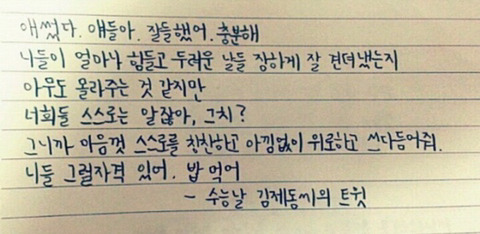 애썼다. 얘들아. 잘들했어. 충분해
니들이 얼마나 힘들고 두려운 날들 장하게 잘 견뎌냈는지
아무도 몰라주는 것 같지만
너희들 스스로는 알잖아, 그치?
그니까 마음껏 스스로를 칭찬하고 아낌없이 위로하고 쓰다듬어줘.
니들 그럴자격 있어. 밥 먹어
- 수능날 김제동씨의 트윗